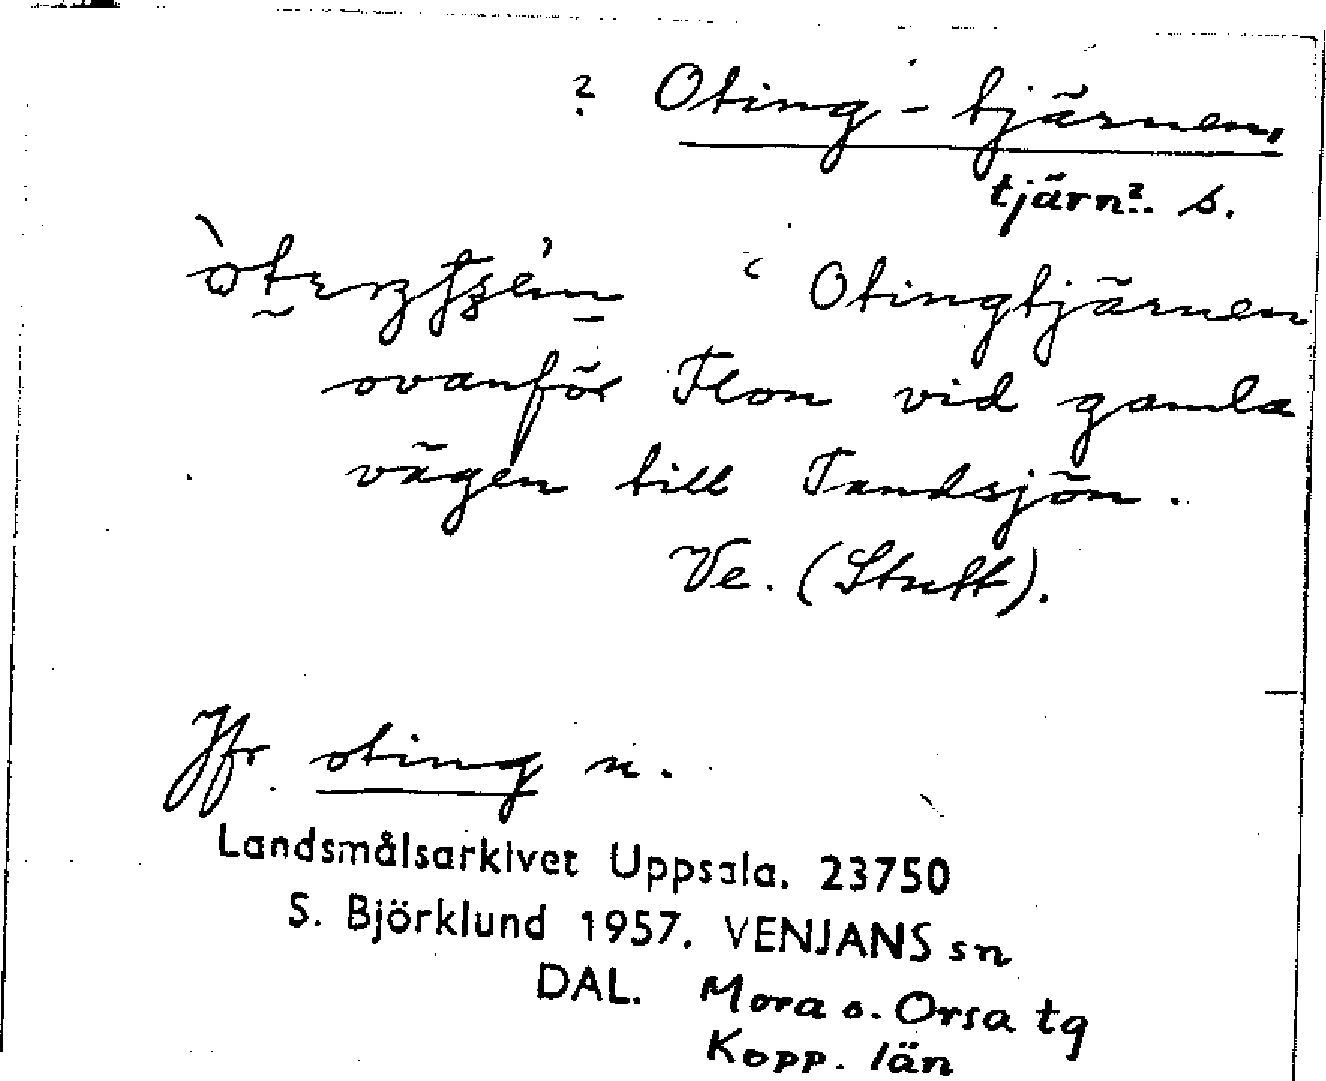 ? Oting-tjärnen,
tjärn?. s.
‘ Otingtjärnen
ovanför Flon vid gamla
vägen till Tandsjön.
Ve. (Stutt).
Jfr oting n.
Landsmålsarkivet Uppsala. 23750
S. Björklund 1957. VENJANS sn
DAL. Mora o. Orsa tg
Kopp. län